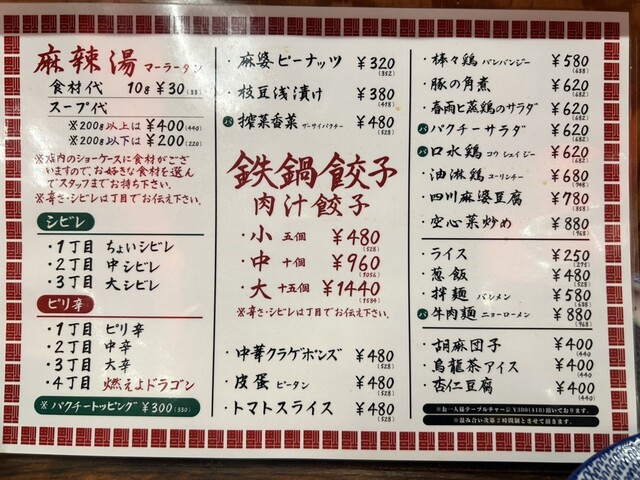 麻辣湯 マーラータン
食材代 10g ¥30(33)
スープ代
※200g以上は¥400(440)
※200g以下は¥200(220)
※店内のショーケースに食材がござ
いますので、お好きな食材を選ん
でスタッフまでお持ち下さい。
※辛さ・シビレは丁目でお伝え下さい。
シビレ
・1丁目 ちょいシビレ
・2丁目 中シビレ
・3丁目 大シビレ
ピリ辛
・1丁目 ピリ辛
・2丁目 中辛
・3丁目 大辛
・4丁目 燃えよドラゴン
※パクチートッピング ¥300(330)
・麻婆ピーナッツ ¥320(352)
・枝豆浅漬け ¥380(418)
パ 搾菜香菜 ザーサイパクチー ¥480(528)
鉄鍋餃子
肉汁餃子
・小 五個 ¥480(528)
・中 十個 ¥960(1056)
・大 十五個 ¥1440(1584)
※辛さ・シビレは丁目でお伝え下さい。
・中華クラゲポンズ ¥480(528)
・皮蛋 ピータン ¥480(528)
・トマトスライス ¥480(528)
・棒々鶏 バンバンジー ¥580(638)
・豚の角煮 ¥620(682)
・春雨と蒸鶏のサラダ ¥620(682)
パ パクチーサラダ ¥620(682)
パ 口水鶏 コウシェイジー ¥620(682)
・油淋鶏 ユーリンチー ¥680(748)
・四川麻婆豆腐 ¥780(858)
・空心菜炒め ¥880(968)
・ライス ¥250(275)
・葱飯 ¥480(528)
・拌麺 バンメン ¥580(638)
パ 牛肉麺 ニョーローメン ¥880(968)
・胡麻団子 ¥400(440)
・烏龍茶アイス ¥400(440)
・杏仁豆腐 ¥400(440)
※お一人様テーブルチャージ¥380(418)頂いております。
※混み合い次第2時間制とさせて頂きます。